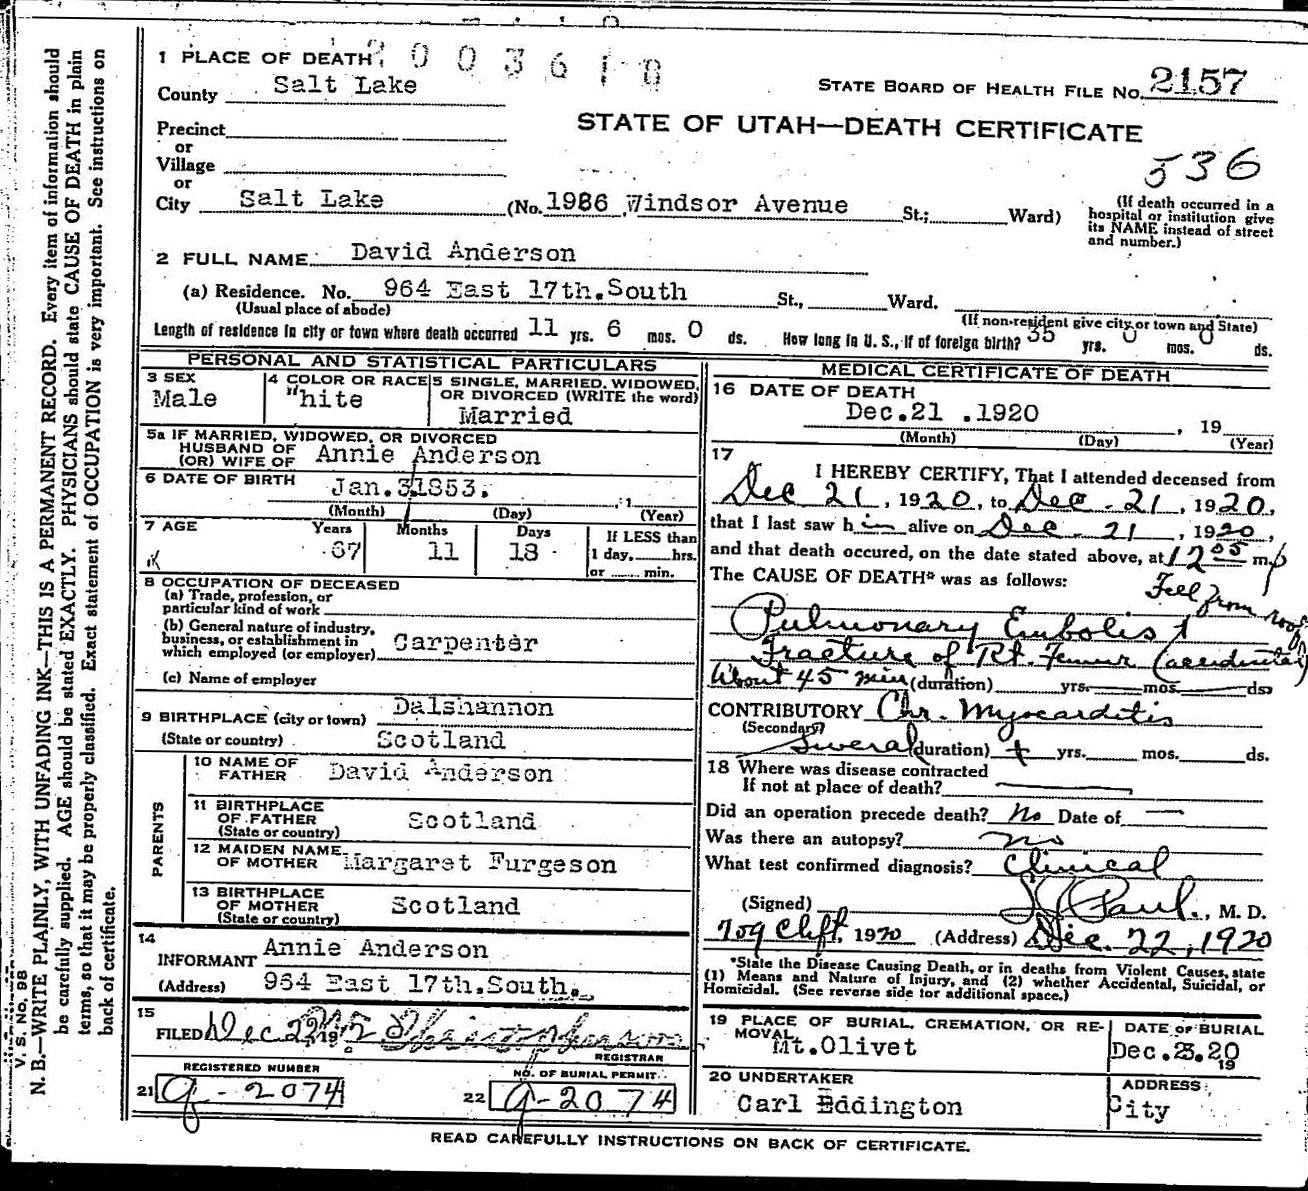 1 PLACE OF DEATH 2003618
County Salt Lake
STATE BOARD OF HEALTH FILE No. 2157
Precinct
or
STATE OF UTAH—DEATH CERTIFICATE
Village
or
536
City Salt Lake (No. 1986 Windsor Avenue St.; Ward)
(If death occurred in a hospital or institution give its NAME instead of street and number.)
2 FULL NAME David Anderson
(a) Residence. No. 964 East 17th. South St., Ward.
(Usual place of abode) (If non-resident give city or town and State)
Length of residence in city or town where death occurred 11 yrs. 6 mos. 0 ds. How long in U. S., if of foreign birth? 35 yrs. 0 mos. 0 ds.
PERSONAL AND STATISTICAL PARTICULARS
3 SEX
Male
4 COLOR OR RACE
White
5 SINGLE, MARRIED, WIDOWED, OR DIVORCED (WRITE the word)
Married
5a IF MARRIED, WIDOWED, OR DIVORCED
HUSBAND OF
(OR) WIFE OF Annie Anderson
6 DATE OF BIRTH Jan. 3 1853.
(Month) (Day) (Year)
7 AGE Years Months Days If LESS than
67 11 18 1 day, hrs.
or min.
8 OCCUPATION OF DECEASED
(a) Trade, profession, or
particular kind of work
(b) General nature of industry,
business, or establishment in
which employed (or employer) Carpenter
(c) Name of employer
9 BIRTHPLACE (city or town) Dalshannon
(State or country) Scotland
PARENTS
10 NAME OF
FATHER David Anderson
11 BIRTHPLACE
OF FATHER Scotland
(State or country)
12 MAIDEN NAME
OF MOTHER Margaret Furgeson
13 BIRTHPLACE
OF MOTHER Scotland
(State or country)
14
INFORMANT Annie Anderson
(Address) 964 East 17th. South.
15
FILED Dec 22
REGISTRAR
REGISTERED NUMBER
21 G-2074
NO. OF BURIAL PERMIT
22 G-2074
MEDICAL CERTIFICATE OF DEATH
16 DATE OF DEATH
Dec. 21 .1920 , 19
(Month) (Day) (Year)
17
I HEREBY CERTIFY, That I attended deceased from
Dec 21, 1920, to Dec. 21, 1920,
that I last saw him alive on Dec. 21, 1920,
and that death occured, on the date stated above, at 12 05 m. p
The CAUSE OF DEATH* was as follows:
Fell from roof
Pulmonary Embolis
Fracture of Rt. Femur (accidental)
About 45 min (duration) yrs. mos. ds.
CONTRIBUTORY Chr. Myocarditis
(Secondary)
Several (duration) + yrs. mos. ds.
18 Where was disease contracted
If not at place of death?
Did an operation precede death? No Date of —
Was there an autopsy? no
What test confirmed diagnosis? Clinical
(Signed) Paul., M. D.
709 Clift, 1920 (Address) Dec. 22, 1920
*State the Disease Causing Death, or in deaths from Violent Causes, state
(1) Means and Nature of Injury, and (2) whether Accidental, Suicidal, or
Homicidal. (See reverse side for additional space.)
19 PLACE OF BURIAL, CREMATION, OR RE-
MOVAL
Mt. Olivet
DATE OF BURIAL
Dec. 23. 20
19
20 UNDERTAKER
Carl Eddington
ADDRESS
City
READ CAREFULLY INSTRUCTIONS ON BACK OF CERTIFICATE.
V. S. No. 98
N. B.—WRITE PLAINLY, WITH UNFADING INK—THIS IS A PERMANENT RECORD. Every item of information should
be carefully supplied. AGE should be stated EXACTLY. PHYSICIANS should state CAUSE OF DEATH in plain
terms, so that it may be properly classified. Exact statement of OCCUPATION is very important. See instructions on
back of certificate.